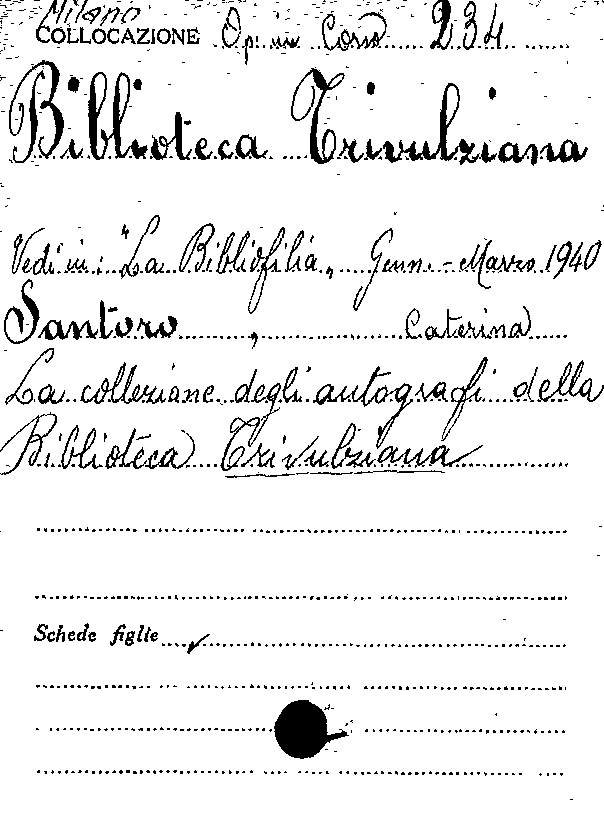 Milano
COLLOCAZIONE Op. in Corso 234
Biblioteca Trivulziana
Vedi in: "La Bibliofilia„ Genn. - Marzo 1940
Santoro, Caterina
La collezione degli autografi della
Biblioteca Trivulziana
Schede figlie